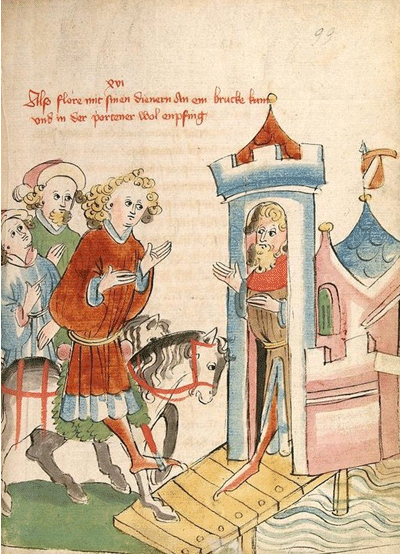 93
xvi
Als flore mit sinen dienern an ein brucke kam
vnd in der portener wol enpfing